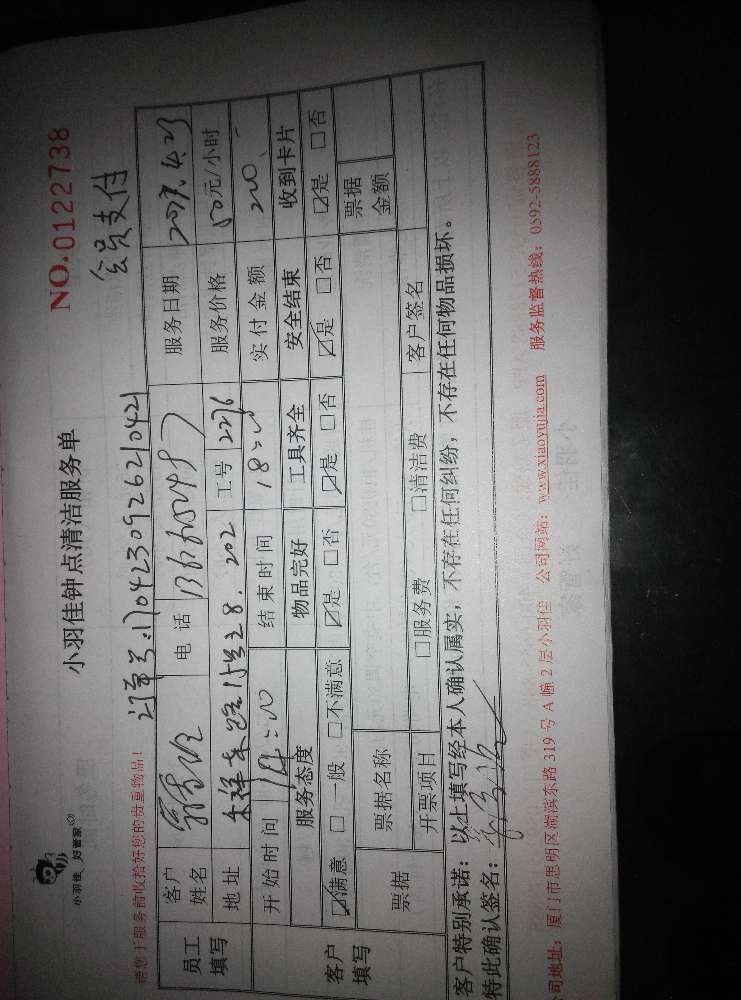 小羽佳 好管家
小羽佳钟点清洁服务单
NO.0122738
请您于服务前收拾好您的贵重物品!
订单号:1704230926210421
会员支付
员工填写
客户姓名
电话
服务日期 2017.4.23
地址 28.202
工号 2276
服务价格 50元/小时
客户填写
开始时间 14:00
结束时间 18:00
实付金额 200
服务态度 物品完好 工具齐全 安全结束 收到卡片
☑满意 □一般 □不满意 ☑是 □否 ☑是 □否 ☑是 □否 ☑是 □否
票据
票据名称
票据金额
开票项目 □服务费 □清洁费 客户签名
客户特别承诺:以上填写经本人确认属实,不存在任何纠纷,不存在任何物品损坏。
特此确认签名:
公司地址:厦门市思明区湖滨东路319号A幢2层小羽佳 公司网站:www.xiaoyujia.com 服务监督热线:0592-5888123